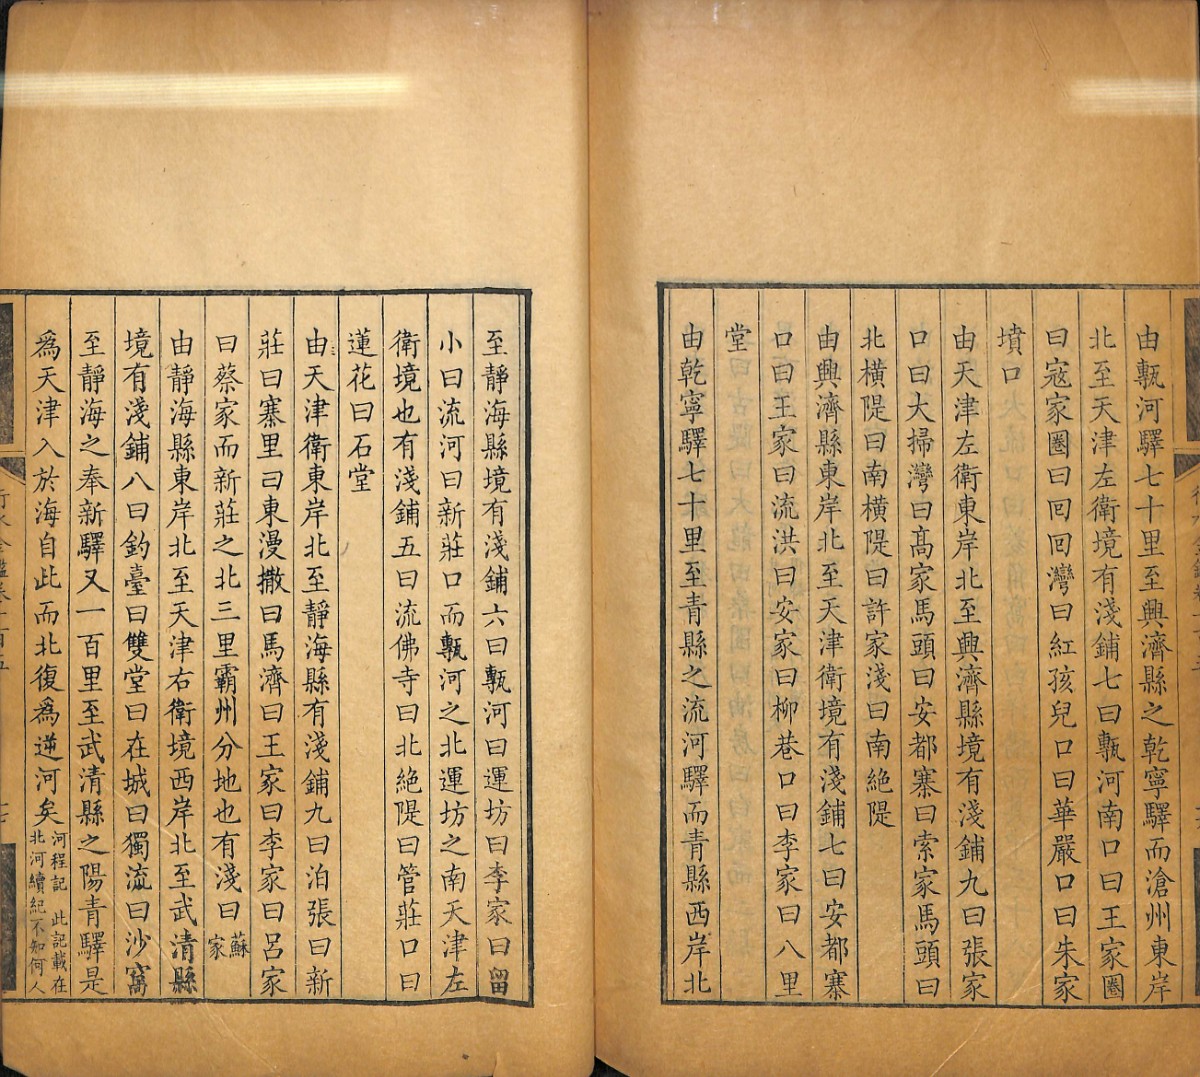 由甎河驛七十里至興濟縣之乾寧驛而滄州東岸
北至天津左衛境有淺鋪七曰甎河南口曰王家圈
曰宼家圏曰回回灣曰紅孩兒口曰華嚴口曰朱家
墳口
由天津左衛東岸北至興濟縣境有淺鋪九曰張家
口曰大掃灣曰髙家馬頭曰安都寨曰索家馬頭曰
北橫隄曰南橫隄曰許家淺曰南絶隄
由興濟縣東岸北至天津衛境有淺鋪七曰安都寨
口曰王家曰流洪曰安家曰柳巷口曰李家曰八里
堂
由乾寧驛七十里至青縣之流河驛而青縣西岸北
至靜海縣境有淺鋪六曰甎河曰運坊曰李家曰留
小曰流河曰新莊口而甎河之北運坊之南天津左
衛境也有淺鋪五曰流佛寺曰北絶隄曰管莊口曰
蓮花曰石堂
由天津衛東岸北至靜海縣有淺鋪九曰泊張曰新
莊曰寨里曰東漫撒曰馬濟曰王家曰李家曰呂家
曰蔡家而新莊之北三里霸州分地也有淺曰蘇家
由靜海縣東岸北至天津右衛境西岸北至武清縣
境有淺鋪八曰釣臺曰雙堂曰在城曰獨流曰沙窩
至靜海之奉新驛又一百里至武清縣之陽青驛是
為天津入於海自此而北復為逆河矣河程記 此記載在
北河續紀不知何人